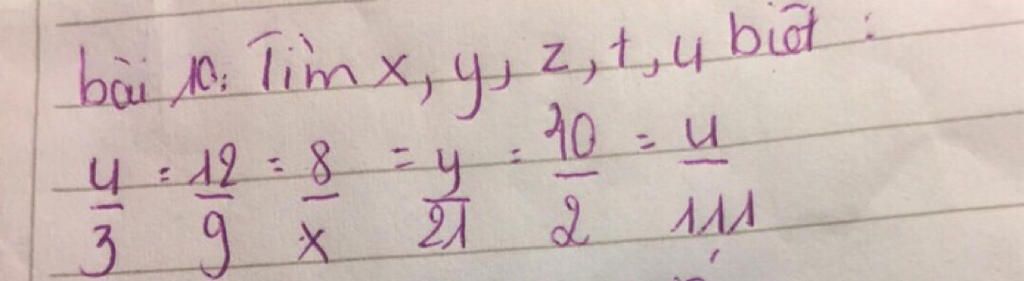 bài 10: Tìm x, y, z, t, u biết :
4/3 = 12/9 = 8/x = y/21 = 40/2 = u/111